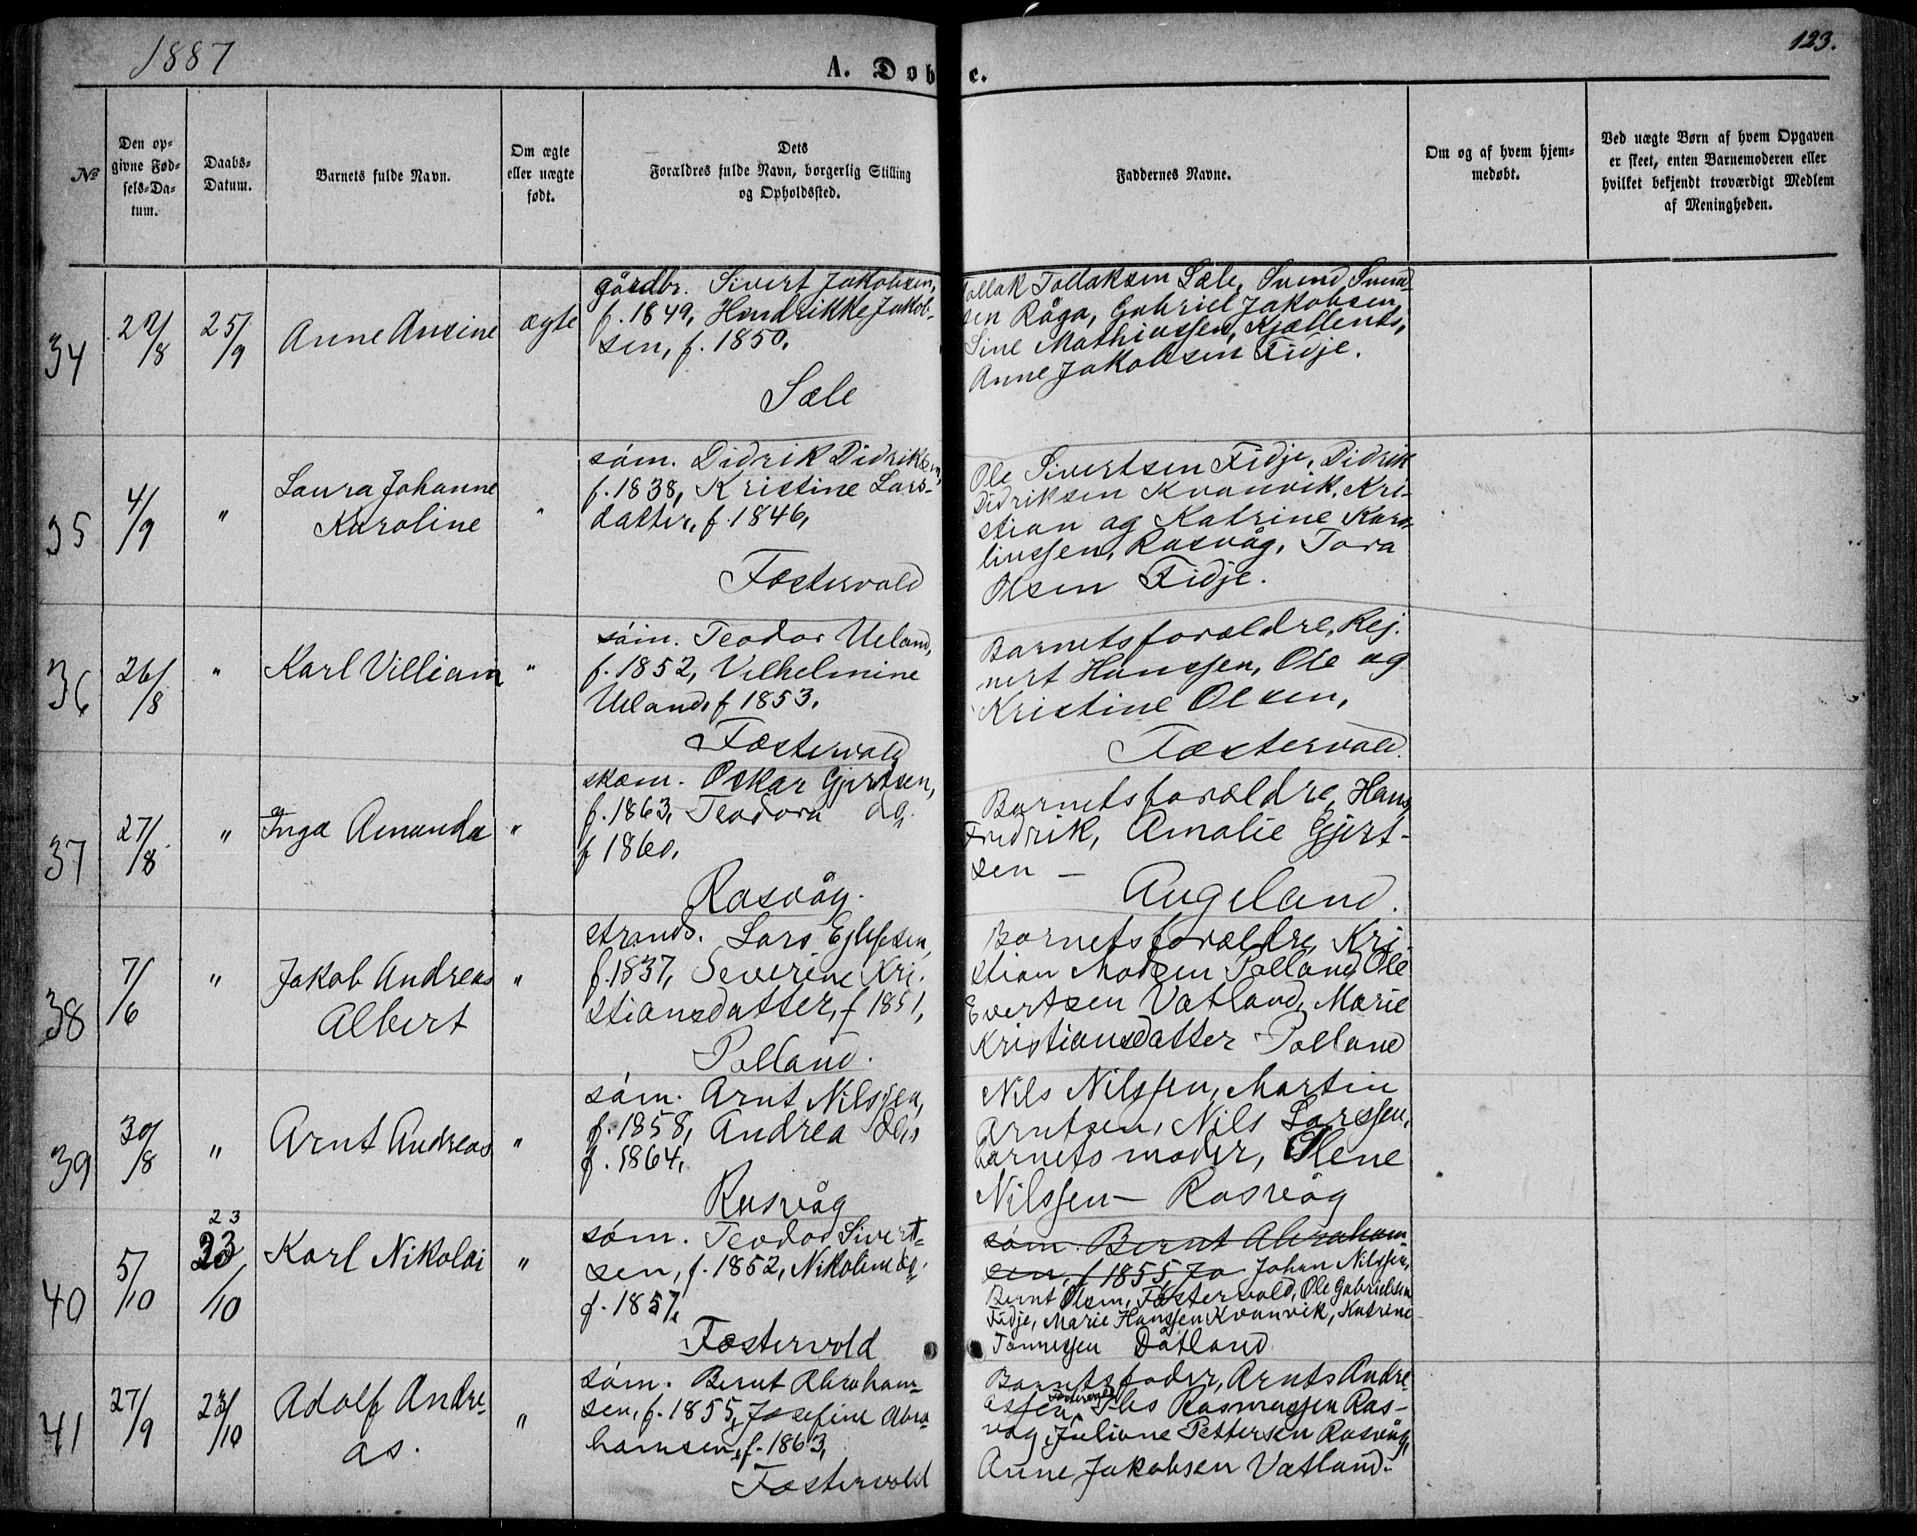 1887
123.
A. Døbte.
№
Den op-
givne Fød-
sels-Da-
tum.
Daabs-
Datum.
Barnets fulde Navn.
Om ægte
eller uægte
født.
Dets
Forældres fulde Navn, borgerlig Stilling
og Opholdssted.
Faddernes Navne.
Om og af hvem hjem-
medøbt.
Ved uægte Børn af hvem Opgaven
er skeet, enten Barnemoderen eller
hvilket bekjendt troværdigt Medlem
af Menigheden.
34
22/8
25/9
Anne Ansine
ægte
gårdbr. Sivert Jakobsen,
f. 1849, Hendrikke Jakob-
sen, f. 1850.
Sæle
Tollak Tollaksen Sæle, Svend Svend-
sen Råga, Gabriel Jakobsen,
Sine Mathiassen, Kjællends,
Anne Jakobsen Fidje.
35
4/9
"
Laura Johanne
Karoline
"
søm. Didrik Didriksen,
f. 1838, Kristine Lars-
datter, f. 1846,
Fæstervold
Ole Sivertsen Fidje, Didrik
Didriksen Kvanvik, Kri-
stian og Katrine Karo-
liussen, Rasvåg, Tora
Olsen Fidje.
36
26/8
"
Karl Villiam
"
søm. Teodor Ueland,
f. 1852, Vilhelmine
Ueland, f 1853.
Fæstervold
Barnets forældre, Rej-
nert Hanssen, Ole og
Kristine Olsen,
Fæstervold.
37
27/8
"
Inga Amanda
"
skom. Oskar Gjertsen,
f. 1863, Teodora do,
f 1860.
Rasvåg.
Barnets forældre, Hans
Fredrik, Amalie Gjert-
sen –
Augeland.
38
7/6
"
Jakob Andreas
Albert
"
strands. Lars Ejlefsen,
f. 1837, Severine Kri-
stiansdatter, f 1851,
Polland.
Barnets forældre, Kri-
stian Madsen Polland, Ole
Evertsen Vatland, Marie
Kristiansdatter Polland
39
30/8
"
Arnt Andreas
"
søm. Arnt Nilssen,
f. 1858, Andrea do,
f. 1864,
Rasvåg
Nils Nilssen, Martin
Arntsen, Nils Larssen,
barnets moder, Olene
Nilssen – Rasvåg
40
5/10
23
23/10
Karl Nikolai
"
søm. Teodor Sivert-
sen, f. 1852, Nikoline do,
f. 1857,
Fæstervold
søm. Bernt Abraham-
sen, f 1855, Jo Johan Nilssen,
Bernt Olsen, Fæstervold, Ole Gabrielsen
Fidje, Marie Hanssen Kvanvik, Katrine
Tønnessen Dåtland
41
27/9
23/10
Adolf Andre-
as.
"
søm. Bernt Abraham-
sen, f. 1855, Josefine Abra-
hamsen, f. 1863,
Fæstervold
Barnets fader, Arnts Andre-
assen, Rasmussen Ras-
våg, Juliane Pettersen Rasvåg,
Anne Jakobsen Vatland.